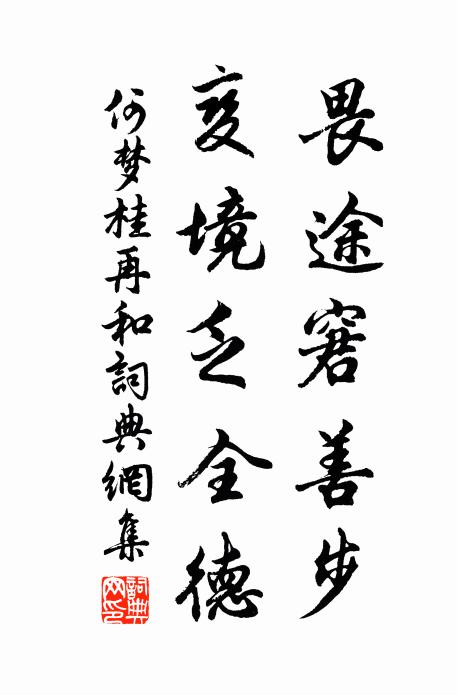 畏途窘善步
变境乏全德
何梦桂再和詞典網集
詞典网印